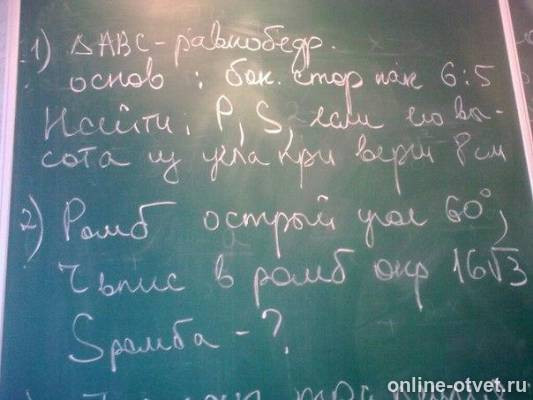 1) ΔABC - равнобедр.
основ : бок. стор как 6:5
Найти: P, S, если его вы-
сота из угла при верш 8 см
2) Ромб острый угол 60°,
r впис в ромб окр 16√3
Sромба - ?
online-otvet.ru